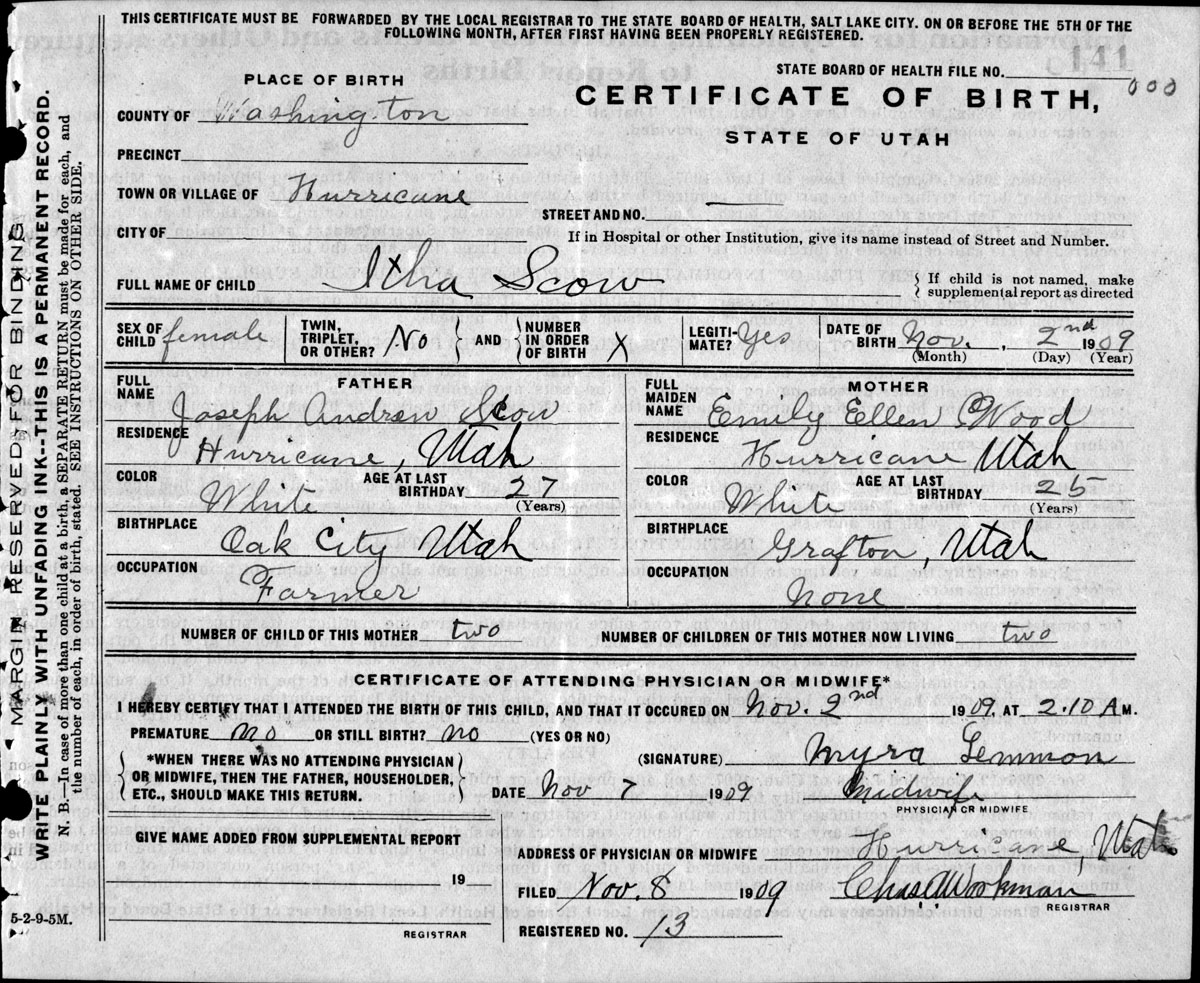 THIS CERTIFICATE MUST BE FORWARDED BY THE LOCAL REGISTRAR TO THE STATE BOARD OF HEALTH, SALT LAKE CITY. ON OR BEFORE THE 5TH OF THE
FOLLOWING MONTH, AFTER FIRST HAVING BEEN PROPERLY REGISTERED.
STATE BOARD OF HEALTH FILE NO. 141
000
PLACE OF BIRTH
CERTIFICATE OF BIRTH,
STATE OF UTAH
COUNTY OF Washington
PRECINCT
TOWN OR VILLAGE OF Hurricane
STREET AND NO. —
CITY OF
If in Hospital or other Institution, give its name instead of Street and Number.
FULL NAME OF CHILD Itha Scow
{ If child is not named, make
supplemental report as directed
SEX OF CHILD female
TWIN, TRIPLET, OR OTHER? No
} AND {
NUMBER IN ORDER OF BIRTH X
LEGITI-MATE? Yes
DATE OF BIRTH Nov. , 2nd 1909
(Month) (Day) (Year)
FATHER
FULL NAME Joseph Andrew Scow
RESIDENCE Hurricane, Utah
COLOR White AGE AT LAST BIRTHDAY 27
(Years)
BIRTHPLACE Oak City Utah
OCCUPATION Farmer
MOTHER
FULL MAIDEN NAME Emily Ellen Wood
RESIDENCE Hurricane Utah
COLOR White AGE AT LAST BIRTHDAY 25
(Years)
BIRTHPLACE Grafton, Utah
OCCUPATION None
NUMBER OF CHILD OF THIS MOTHER two NUMBER OF CHILDREN OF THIS MOTHER NOW LIVING two
CERTIFICATE OF ATTENDING PHYSICIAN OR MIDWIFE*
I HEREBY CERTIFY THAT I ATTENDED THE BIRTH OF THIS CHILD, AND THAT IT OCCURED ON Nov. 2nd 1909 AT 2.10 A M.
PREMATURE no OR STILL BIRTH? no (YES OR NO)
*WHEN THERE WAS NO ATTENDING PHYSICIAN
OR MIDWIFE, THEN THE FATHER, HOUSEHOLDER,
ETC., SHOULD MAKE THIS RETURN.
(SIGNATURE) Myra Lemmon
DATE Nov 7 1909 Midwife
PHYSICIAN OR MIDWIFE
GIVE NAME ADDED FROM SUPPLEMENTAL REPORT
19
REGISTRAR
ADDRESS OF PHYSICIAN OR MIDWIFE Hurricane, Utah.
FILED Nov. 8 1909 Workman
REGISTRAR
REGISTERED NO. 13
MARGIN RESERVED FOR BINDING
WRITE PLAINLY WITH UNFADING INK--THIS IS A PERMANENT RECORD.
N. B.—In case of more than one child at a birth, a SEPARATE RETURN must be made for each, and
the number of each, in order of birth, stated. SEE INSTRUCTIONS ON OTHER SIDE.
5-2-9-5M.